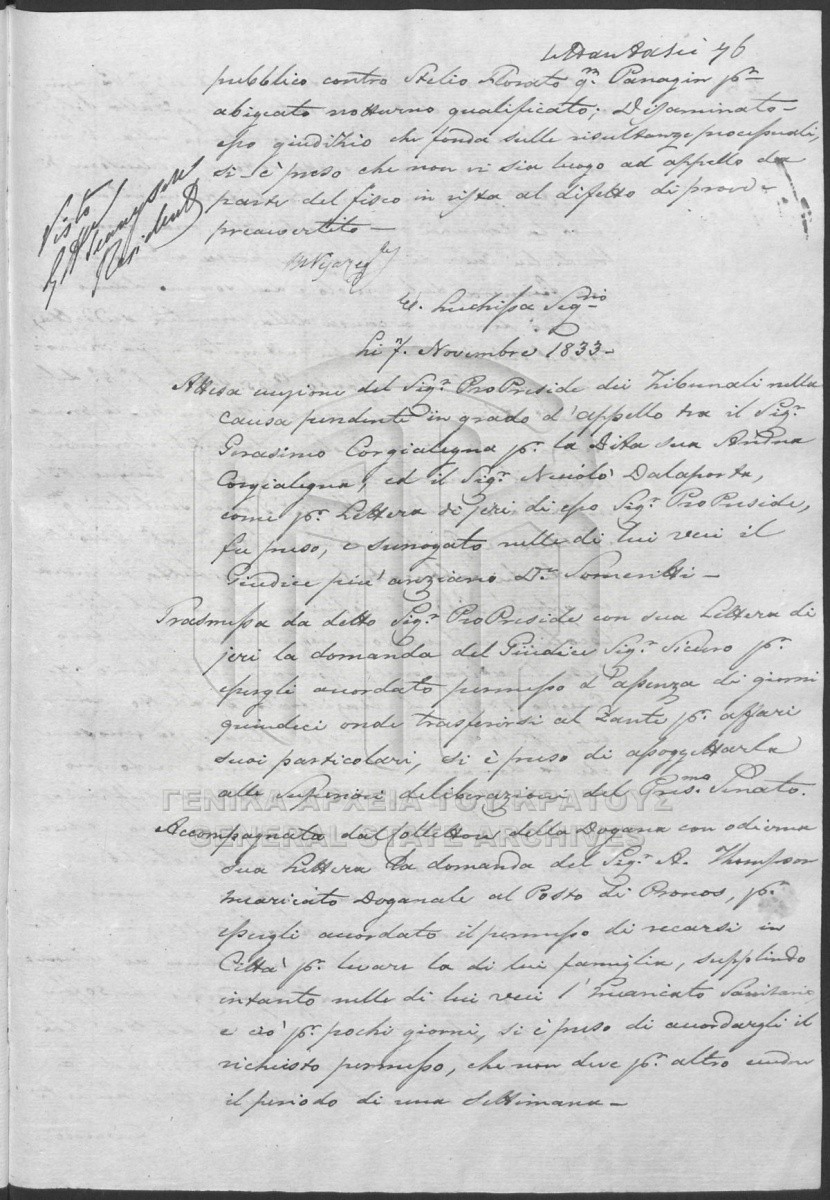 Settantasei 76
pubblico contro Stelio Florato qm Panagin pr
abigeato notturno qualificato; Disaminato
esso giudizio che fonda sulle risultanze processuali,
si è preso che non vi sia luogo ad appello da
parte del fisco in vista al difetto di prove
preavvertito —
Visto
Resident
Seg.rio
Li 7. Novembre 1833 —
Attesa cuzione del Sig.r ProPreside dei Tribunali nella
causa pendente in grado d'appello tra il Sig.r
Gerasimo Corgialegna p.r la Ditta sua Andrea
Corgialegna, ed il Sig.r Nicolò Dalaporta,
come p.r Lettera di jeri di esso Sig.r ProPreside,
fu preso, e surrogato nelle di lui veci il
Giudice più anziano D.r Someritti —
Trasmessa da detto Sig.r ProPreside con sua Lettera di
jeri la domanda del Giudice Sig.r Sicuro p.r
essergli accordato permesso d'assenza di giorni
quindici onde trasferirsi al Zante p.r affari
suoi particolari, si è preso di assoggettarla
alle superiori deliberazioni del Pres.mo Senato.
ΓΕΝΙΚΑ ΑΡΧΕΙΑ ΤΟΥ ΚΡΑΤΟΥΣ
GENERAL STATE ARCHIVES
Accompagnata dal Collettore della Dogana con odierna
sua Lettera la domanda del Sig.r A. Thompson
Incaricato Doganale al Posto di Pronos, p.r
essergli accordato il permesso di recarsi in
Città p.r levare la di lui famiglia, supplindo
intanto nelle di lui veci l'Incaricato Sanitario
e ciò p.r pochi giorni, si è preso di accordargli il
richiesto permesso, che non deve p.r altro ceder
il periodo di una settimana —